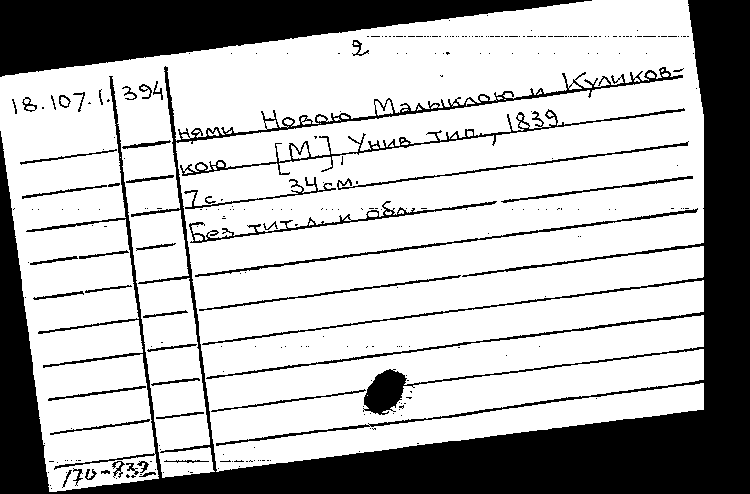 2
18.107.1. 394
нями Новою Малыклою и Куликов=
кою [М], Унив тип., 1839.
7 с. 34 см.
Без тит. л. и обл.
170-832